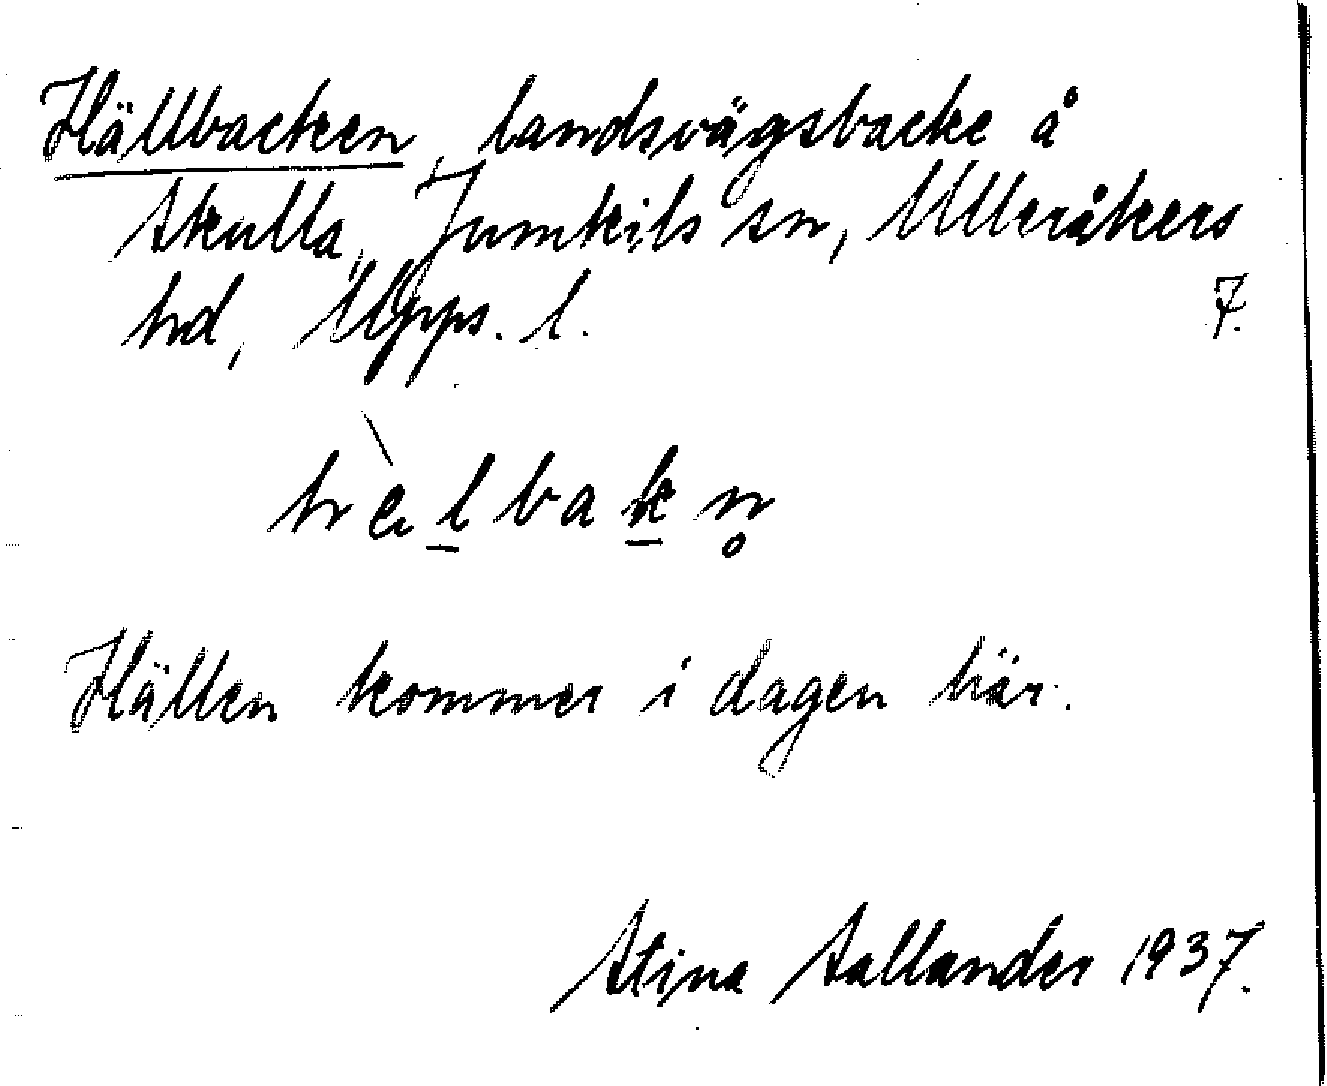 Hällbacken, landsvägsbacke å
Skulla, Jumkils sn, Ulleråkers
hd, Upps. l. 7.
hὲlbakn̥
Hällen kommer i dagen här.
Stina Sallander 1937.